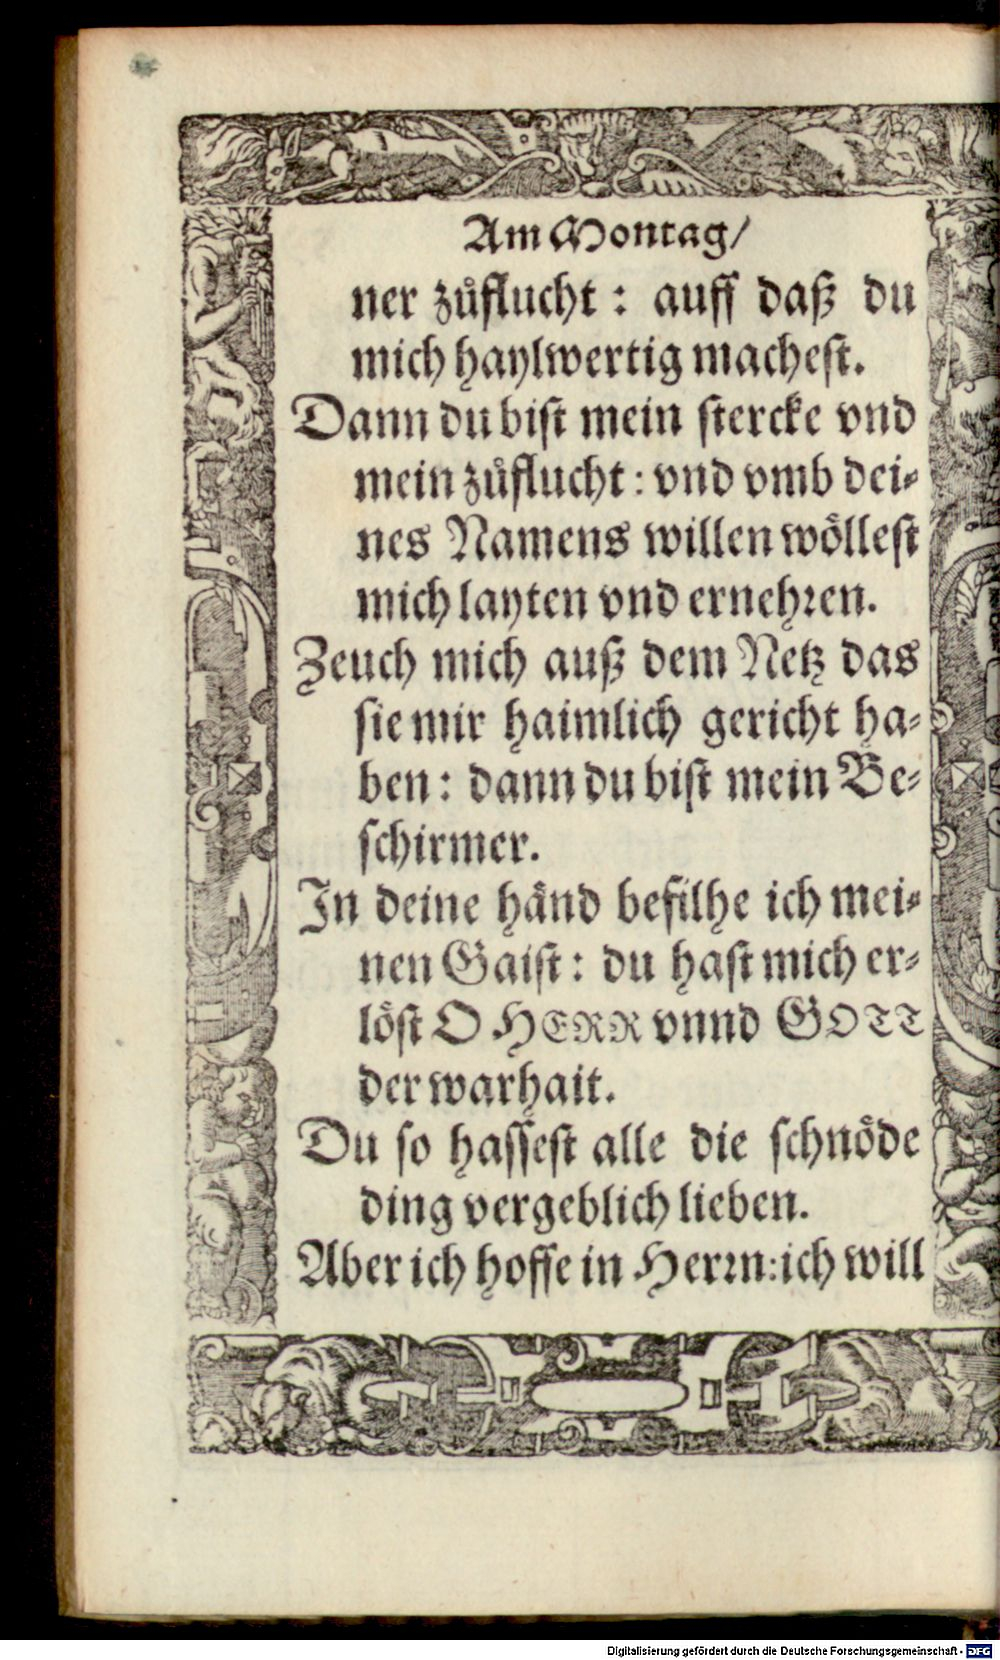 Am Montag/
ner zůflucht: auff daß du
mich haylwertig machest.
Dann du bist mein stercke vnd
mein zůflucht: vnd vmb dei⸗
nes Namens willen wöllest
mich layten vnd ernehren.
Zeuch mich auß dem Netz das
sie mir haimlich gericht ha⸗
ben: dann du bist mein Be⸗
schirmer.
In deine händ befilhe ich mei⸗
nen Gaist: du hast mich er⸗
löst O HERR vnnd GOTT
der warhait.
Du so hassest alle die schnöde
ding vergeblich lieben.
Aber ich hoffe in Herrn: ich will
Digitalisierung gefördert durch die Deutsche Forschungsgemeinschaft - DFG